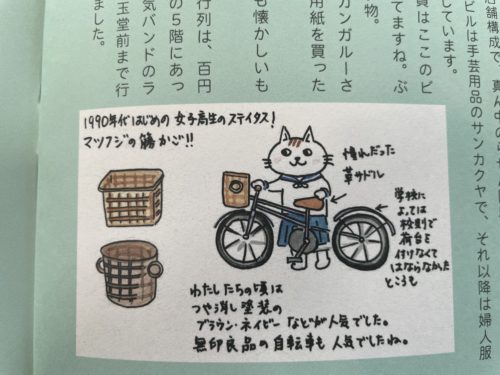 店舗構成で、真ん中から
ビルは手芸用品のサンカクヤで、それ以降は婦人服
しています。
はここのビ
てますね。ぶ
物。
カンガルーさ
用紙を買った
も懐かしいも
行列は、百円
の5階にあっ
気バンドのラ
玉堂前まで行
ました。
1990年代はじめの女子高生のステイタス!
マツフジの籐かご!!
憧れだった
革サドル
学校に
よっては
校則で
荷台を
付けなくて
はならなかった
ところも
わたしたちの頃は
つや消し塗装の
ブラウン・ネイビーなどが人気でした。
無印良品の自転車も人気でしたね。